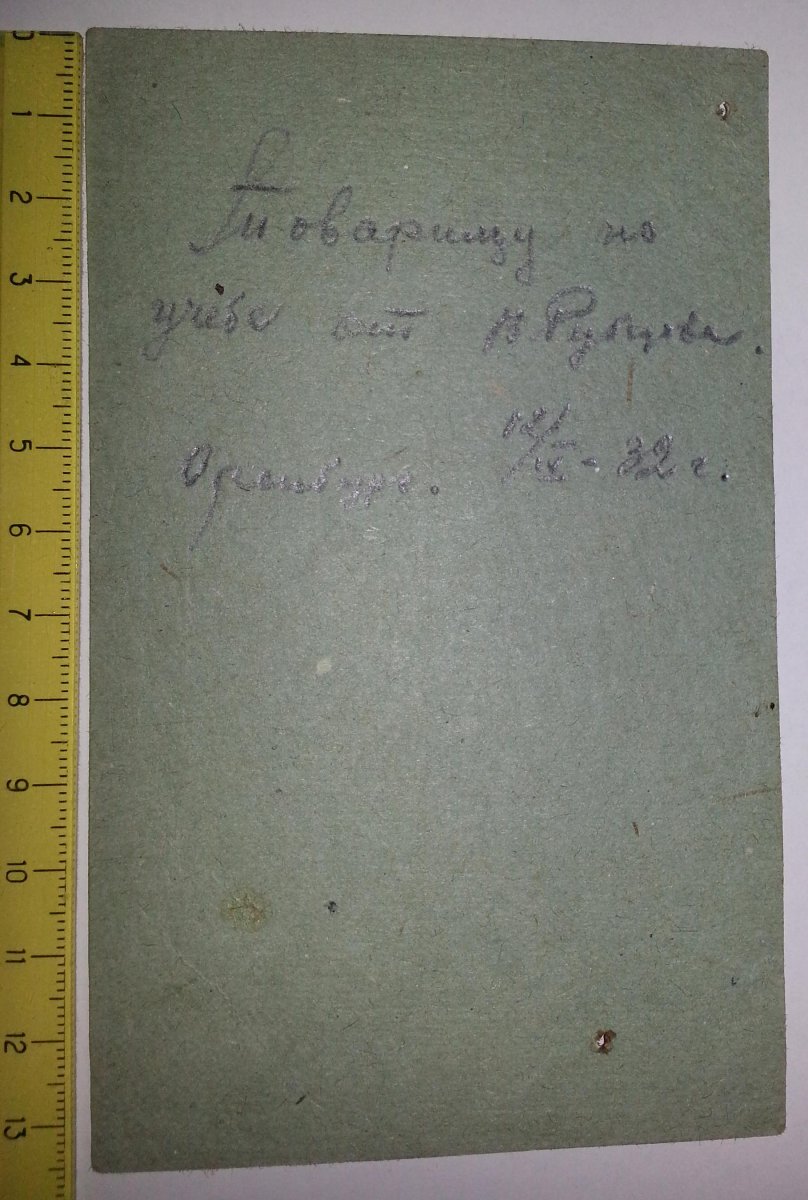 Товарищу по
учёбе от Н. Рубцова.
Оренбург. /IX - 32 г.
0
1
2
3
4
5
6
7
8
9
10
11
12
13